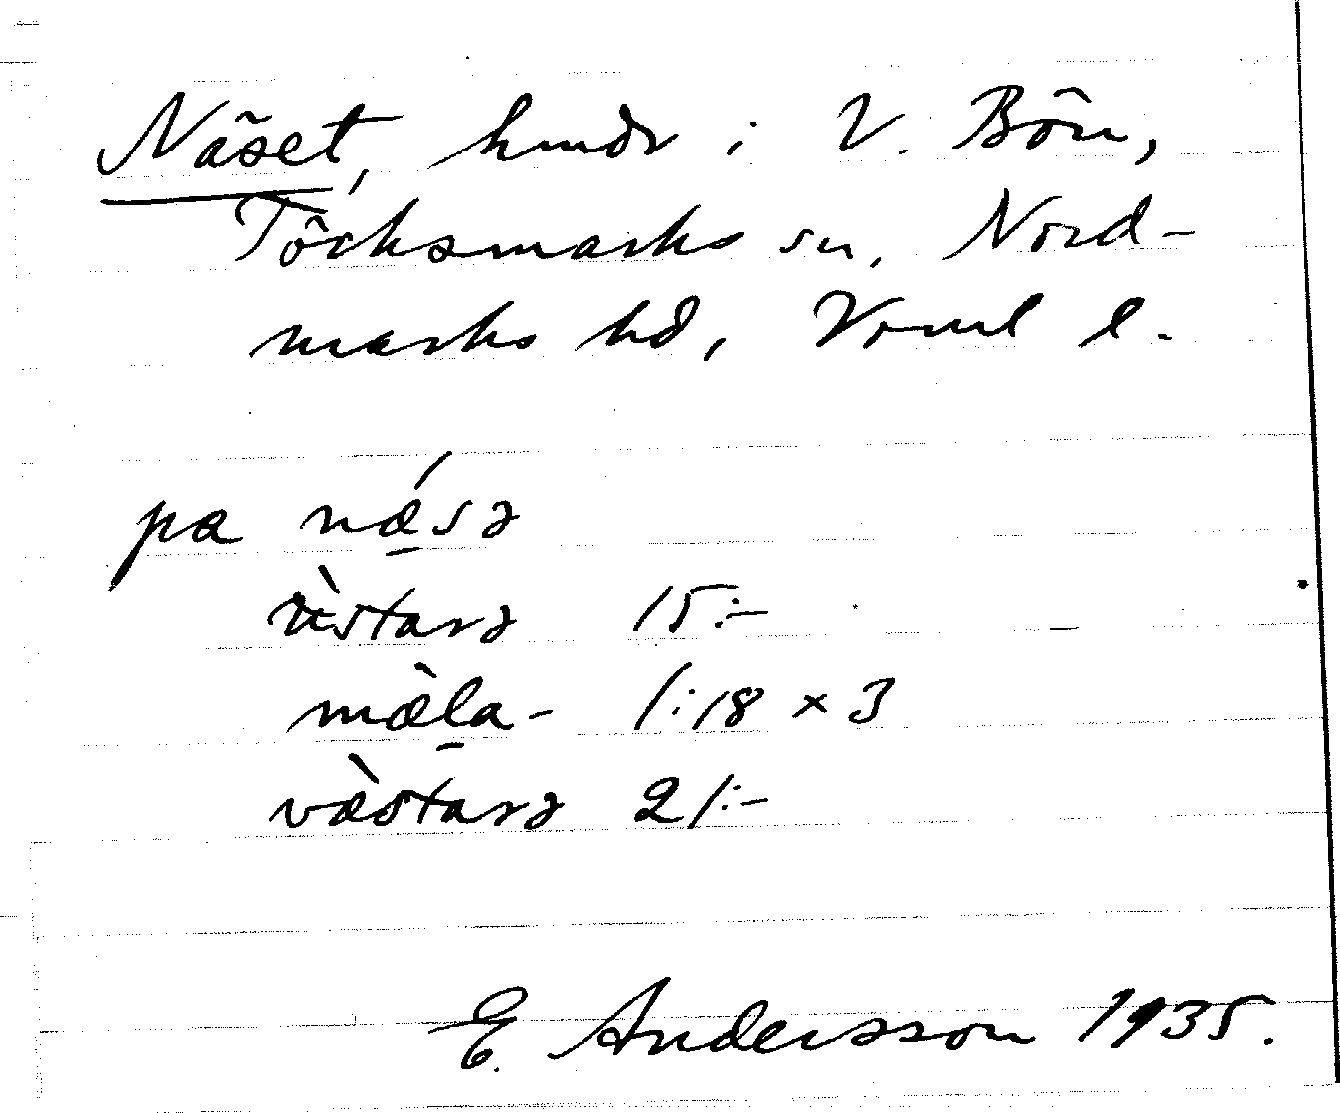 Näset, hmdr i V. Bön,
Töcksmarks sn, Nord-
marks hd, Vrml l.
pa nǽ̠sə
ʉ̀starə 15:-
mæ̀l̠a- 1:18 × 3
væ̀starə 21:-
E. Andersson 1935.